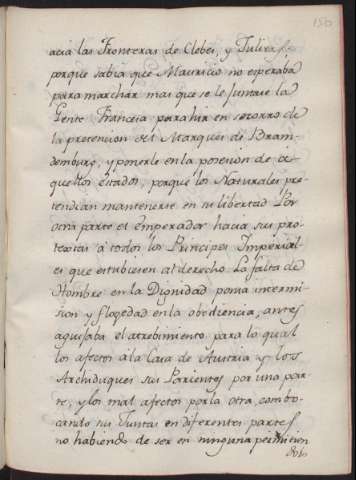 150
acia las Fronteras de Clebes, y Juliers
porque sabia que Mauricio no esperaba
para marchar mas que se le juntase la
Gente Francesa para hir en socorro de
la pretencion del Marques de Bram-
demburg, y ponerle en la posesion de a-
quellos Estados, porque los Naturales pre-
tendian mantenerse en su libertad Por
otra parte el Emperador hacia sus pro-
textas a todos los Principes Imperial-
es que estubiesen al derecho. La falta de
Hombre en la Dignidad ponia intermi-
sion y flogedad en la obediencia, antes
aguijaba el atrebimiento para lo qual
los afectos a la Casa de Austria y los
Archiduques sus Parientes por una par-
te, y los mal afectos por la otra, combo-
cando sus Juntas en diferentes partes
no habiendo de ser en ninguna permision